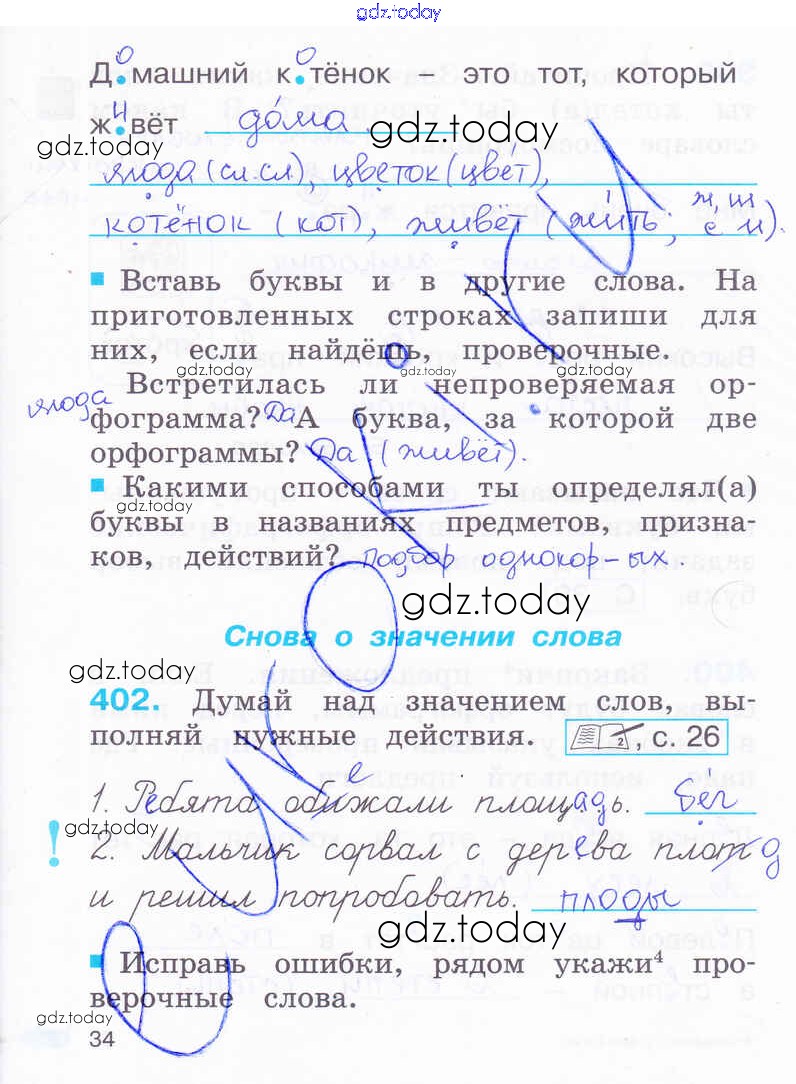 gdz.today
Домашний котёнок – это тот, который
живёт дома.
gdz.today
gdz.today
ягода (сл.сл), цветок (цвет),
котёнок (кот), живёт (жить, ж, ш с и).
Вставь буквы и в другие слова. На
приготовленных строках запиши для
них, если найдёшь, проверочные.
gdz.today
gdz.today
gdz.today
ягода Встретилась ли непроверяемая ор-
фограмма? Да А буква, за которой две
орфограммы? Да (живёт).
Какими способами ты определял(а)
gdz.today
буквы в названиях предметов, призна-
ков, действий? Подбор однокор-ых.
gdz.today
gdz.today
Снова о значении слова
gdz.today
402. Думай над значением слов, вы-
полняй нужные действия. ?, с. 26
gdz.today
е
1. Ребята обижали площадь. бег
gdz.today
! 2. Мальчик сорвал с дерева плот д
и решил попробовать. плоды
gdz.today
Исправь ошибки, рядом укажи⁴ про-
верочные слова.
gdz.today
34